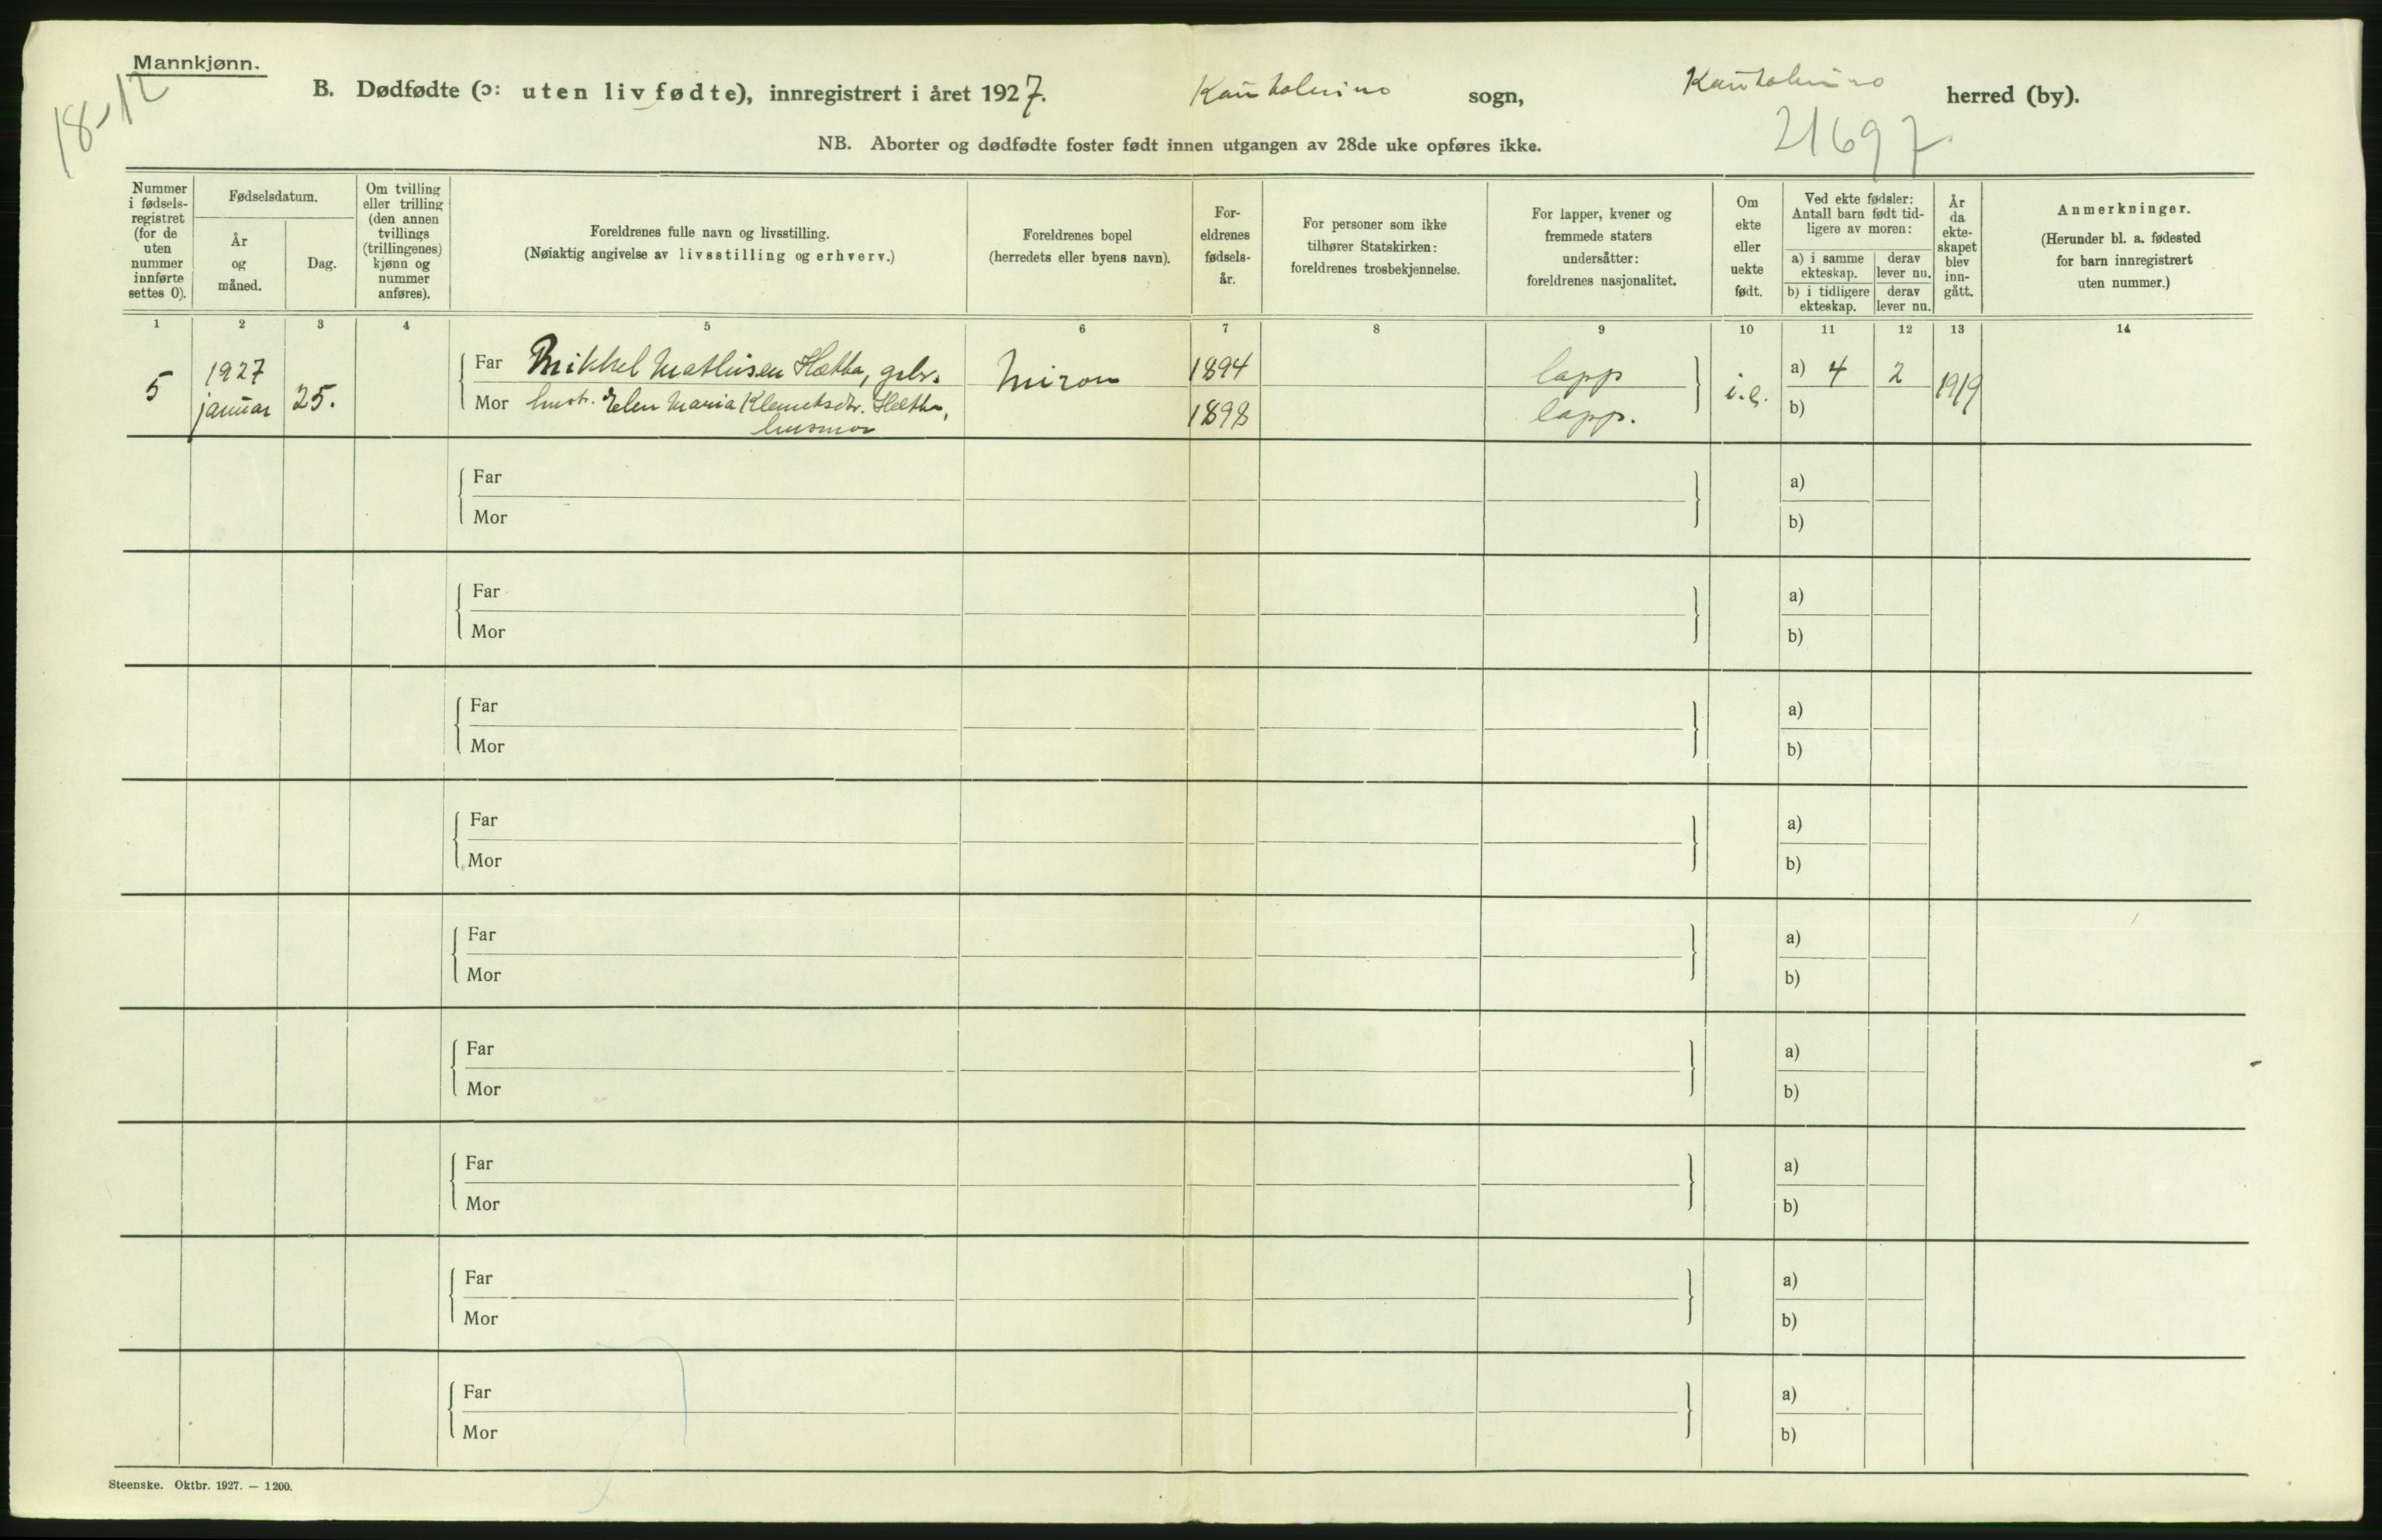 Mannkjønn.
18-12
B. Dødfødte (ɔ: uten liv fødte), innregistrert i året 1927. Kautokeino sogn, Kautokeino herred (by).
21697
NB. Aborter og dødfødte foster født innen utgangen av 28de uke opføres ikke.
Nummer
i fødsels-
registret
(for de
uten
nummer
innførte
settes 0).
Fødselsdatum.
År
og
måned.
Dag.
Om tvilling
eller trilling
(den annen
tvillings
(trillingenes)
kjønn og
nummer
anføres).
Foreldrenes fulle navn og livsstilling.
(Nøiaktig angivelse av livsstilling og erhverv.)
Foreldrenes bopel
(herredets eller byens navn).
For-
eldrenes
fødsels-
år.
For personer som ikke
tilhører Statskirken:
foreldrenes trosbekjennelse.
For lapper, kvener og
fremmede staters
undersåtter:
foreldrenes nasjonalitet.
Om
ekte
eller
uekte
født.
Ved ekte fødsler:
Antall barn født tid-
ligere av moren:
a) i samme
ekteskap.
derav
lever nu.
b) i tidligere
ekteskap.
derav
lever nu.
År
da
ekte-
skapet
blev
inn-
gått.
Anmerkninger.
(Herunder bl. a. fødested
for barn innregistrert
uten nummer.)
1 2 3 4 5 6 7 8 9 10 11 12 13 14
5 1927 januar 25.
Far Mikkel Mathisen Hætta, gbr. Miron 1894 lapp i.e. a) 4 2 1919
Mor hust. Elen Maria Klemetsdtr. Hætta, 1898 lapp. b)
husmor
Far a)
Mor b)
Far a)
Mor b)
Far a)
Mor b)
Far a)
Mor b)
Far a)
Mor b)
Far a)
Mor b)
Far a)
Mor b)
Far a)
Mor b)
Far a)
Mor b)
Steenske. Oktbr. 1927. — 1200.